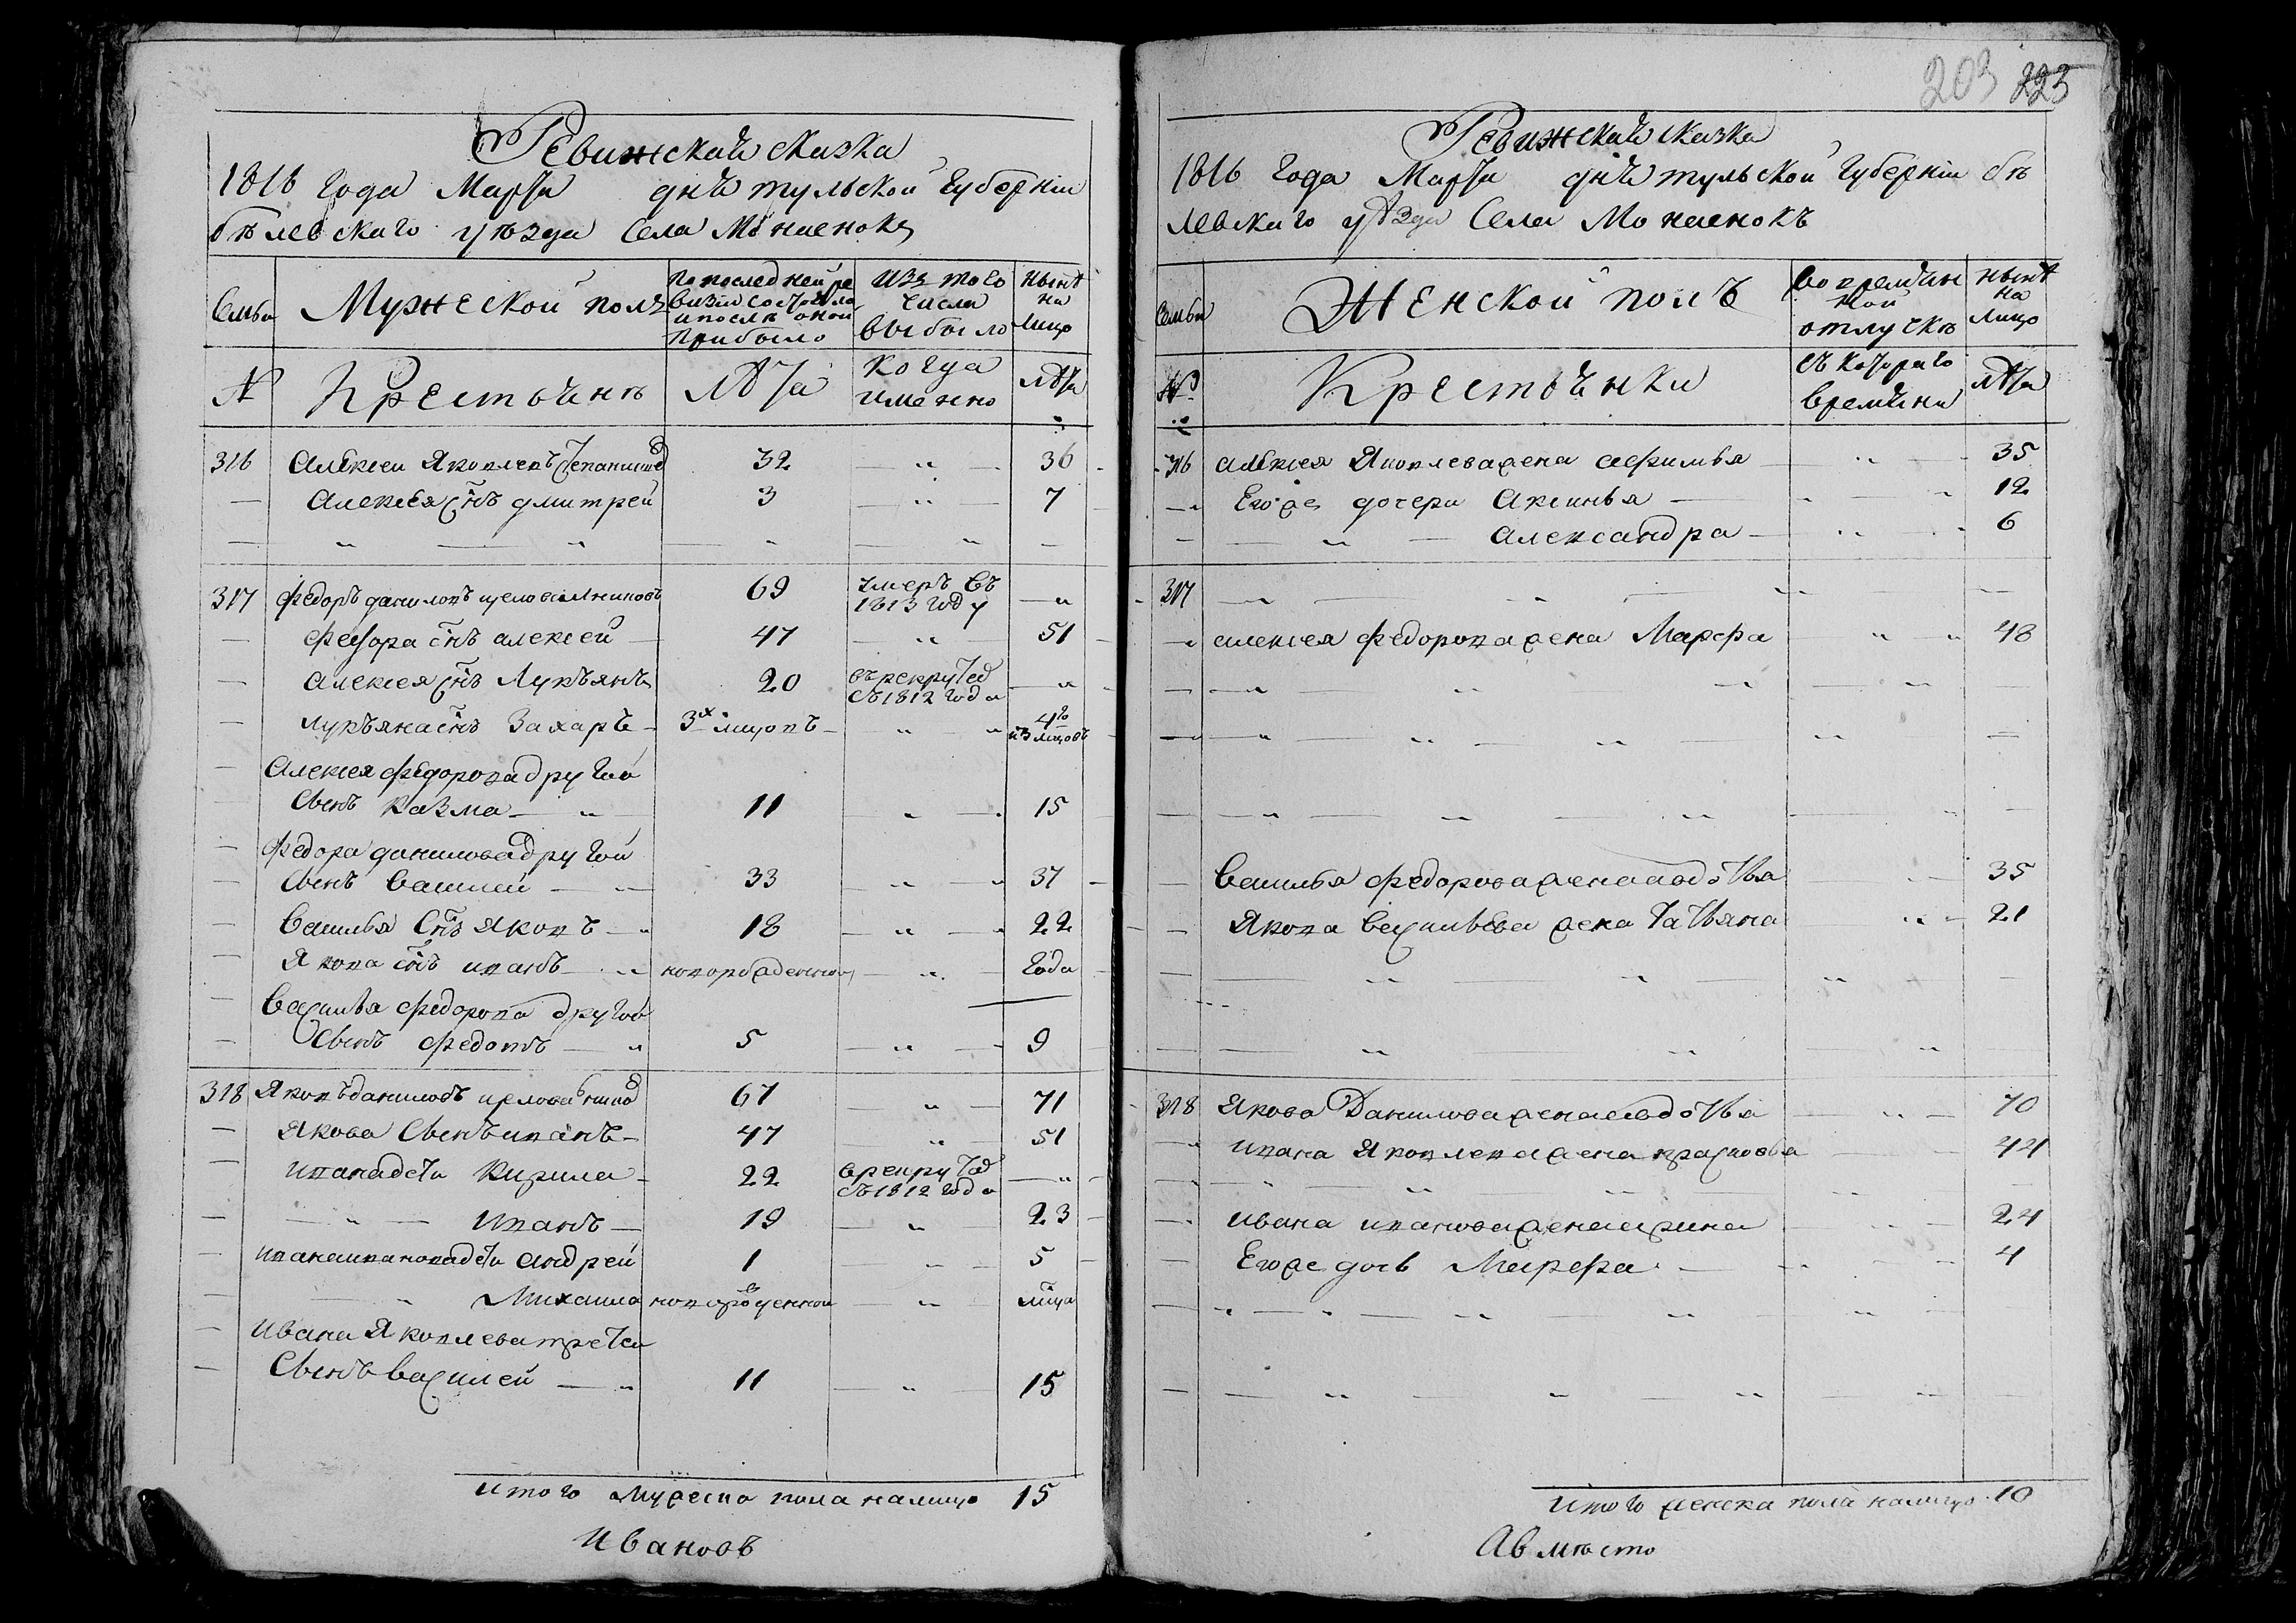 Ревижская сказка
1816 года Марта дня тульской губернии
бѣлевского уѣзда Села Мо
Семьи
Мужеской полъ
По последней ре
визии состояло
и после оной
прибыло
изъ того
числа
выбыло
ныне
на
лицо
№
Крестьянѣ
лѣта
когда
именно
лѣта
316 Алексеи Яковлевъ 32 36
Алексея снъ дмитрей 3 7
317 федоръ даниловъ 69 умеръ въ 1813 году
федора снъ алексей 47 51
Алексея снъ Лукъянъ 20 въ рекруты съ 1812 года
лукъяна снъ Захаръ 3х мцовъ 4 го
Алексея федорова другой
сынъ казма 11 15
федора данилова другой
сынъ василей 33 37
василья снъ яковъ 18 22
Якова снъ иванъ новорожденной года
василья федорова другой
сынъ федотъ 5 9
318 Яковъ даниловъ 67 71
Якова сынъ иванъ 47 51
ивана дети кирила 22 в рекруты съ 1812 года
иванъ 19 23
ивана иванова дети андрей 1 5
Михаила новорожденной мца
ивана Яковлева третей
сынъ василей 11 15
итого мужеска пола налицо 15
Ивановъ
203 223
Ревижская сказка
1816 года Марта дня тульской губернии бѣ
левского уѣзда Села Мо
семьи
Женской полъ
во времян
ной
отлучкѣ
нынѣ
на
лицо
№
Крестьянки
съ котораго
времяни
лѣта
316 алексея Яковлева жена афимья 35
Его же дочери Аксинья 12
александра 6
317
алексея федорова жена Марфа 48
василья федорова жена авдотья 35
Якова васильева жена татьяна 21
318 Якова Данилова жена авдотья 70
ивана Яковлева жена прасковья 44
ивана иванова жена арина 24
Его же дочь Марфа 4
итого женска пола налицо 10
А вместо